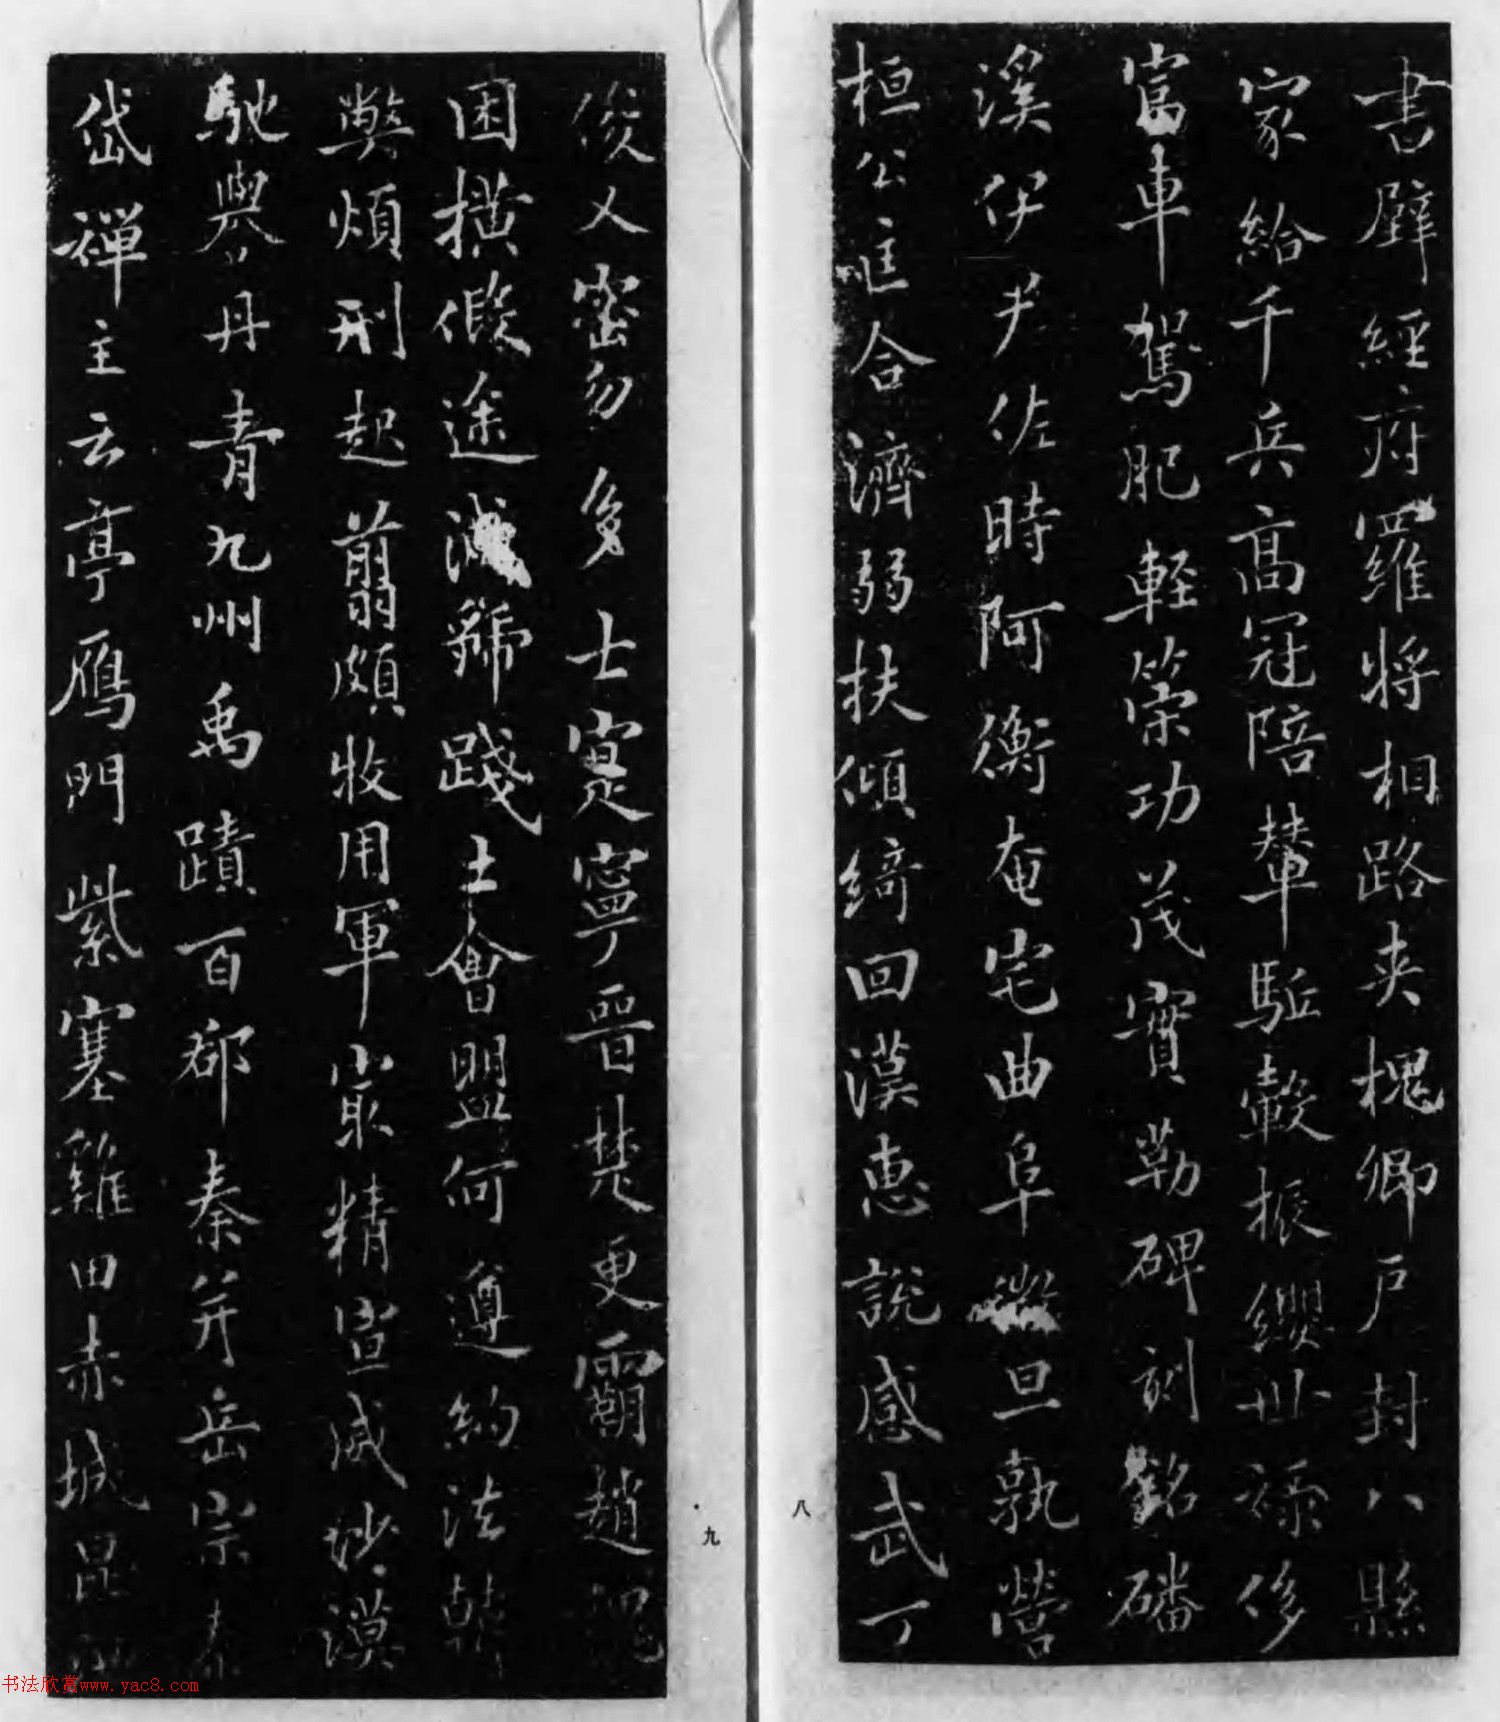 書壁經府羅將相路夾槐卿戶封八縣
家給千兵高冠陪輦駈轂振纓世祿侈
富車駕肥輕策功茂實勒碑刻銘磻
溪伊尹佐時阿衡奄宅曲阜微旦孰營
桓公匡合濟弱扶傾綺回漢惠說感武丁
八
俊乂密勿多士寔寧晉楚更霸趙魏
困橫假途滅虢踐土會盟何遵約法韓
弊煩刑起翦頗牧用軍最精宣威沙漠
馳譽丹青九州禹蹟百郡秦并岳宗泰
岱禪主云亭鴈門紫塞雞田赤城昆
九
书法欣赏www.yac8.com